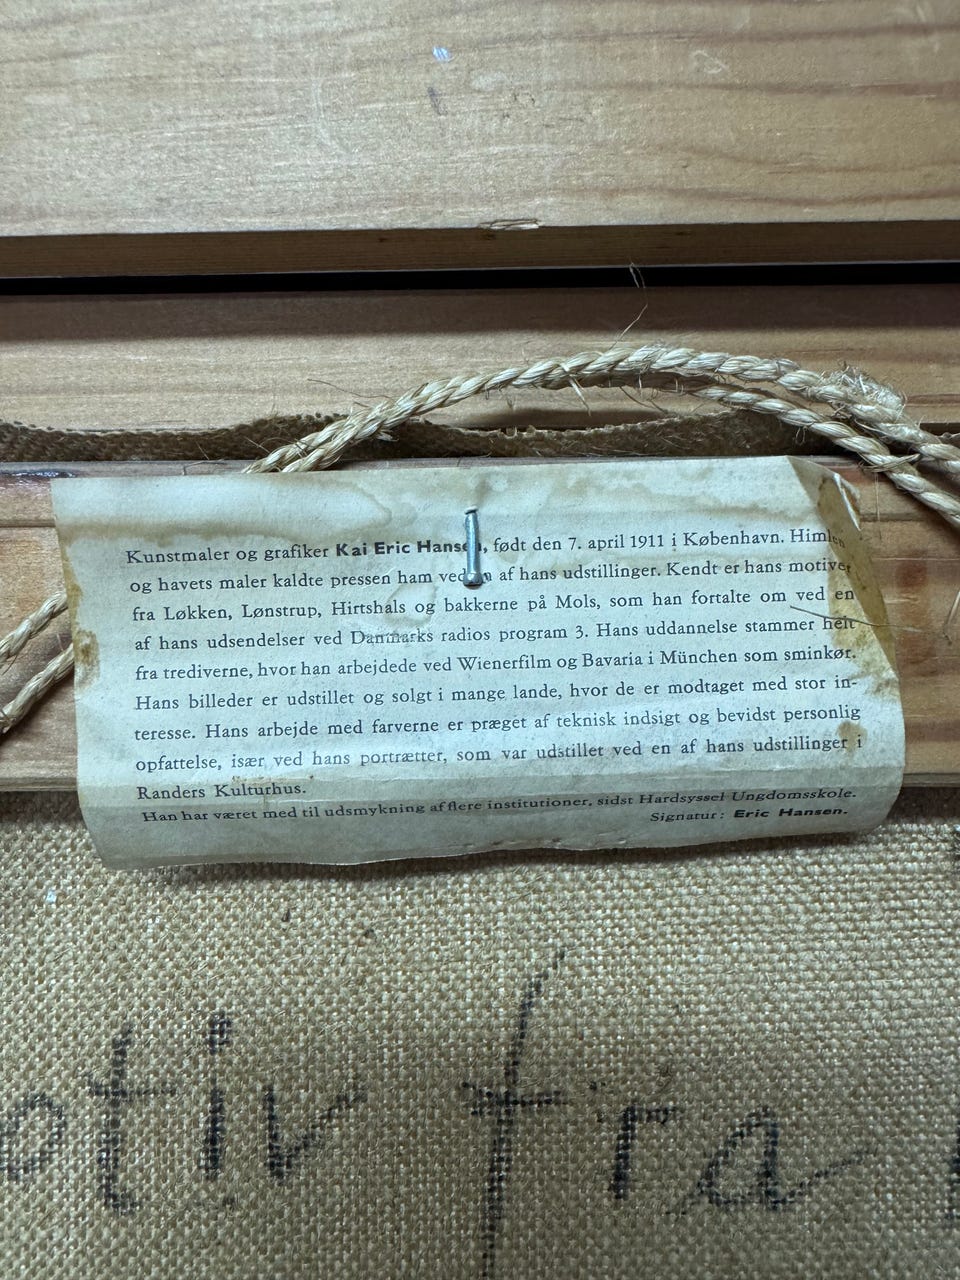 Kunstmaler og grafiker Kai Eric Hansen, født den 7. april 1911 i København. Himlen
og havets maler kaldte pressen ham ved en af hans udstillinger. Kendt er hans motiver
fra Løkken, Lønstrup, Hirtshals og bakkerne på Mols, som han fortalte om ved en
af hans udsendelser ved Danmarks radios program 3. Hans uddannelse stammer helt
fra trediverne, hvor han arbejdede ved Wienerfilm og Bavaria i München som sminkør.
Hans billeder er udstillet og solgt i mange lande, hvor de er modtaget med stor in-
teresse. Hans arbejde med farverne er præget af teknisk indsigt og bevidst personlig
opfattelse, især ved hans portrætter, som var udstillet ved en af hans udstillinger i
Randers Kulturhus.
Han har været med til udsmykning af flere institutioner, sidst Hardsyssel Ungdomsskole.
Signatur: Eric Hansen.
otiv fra